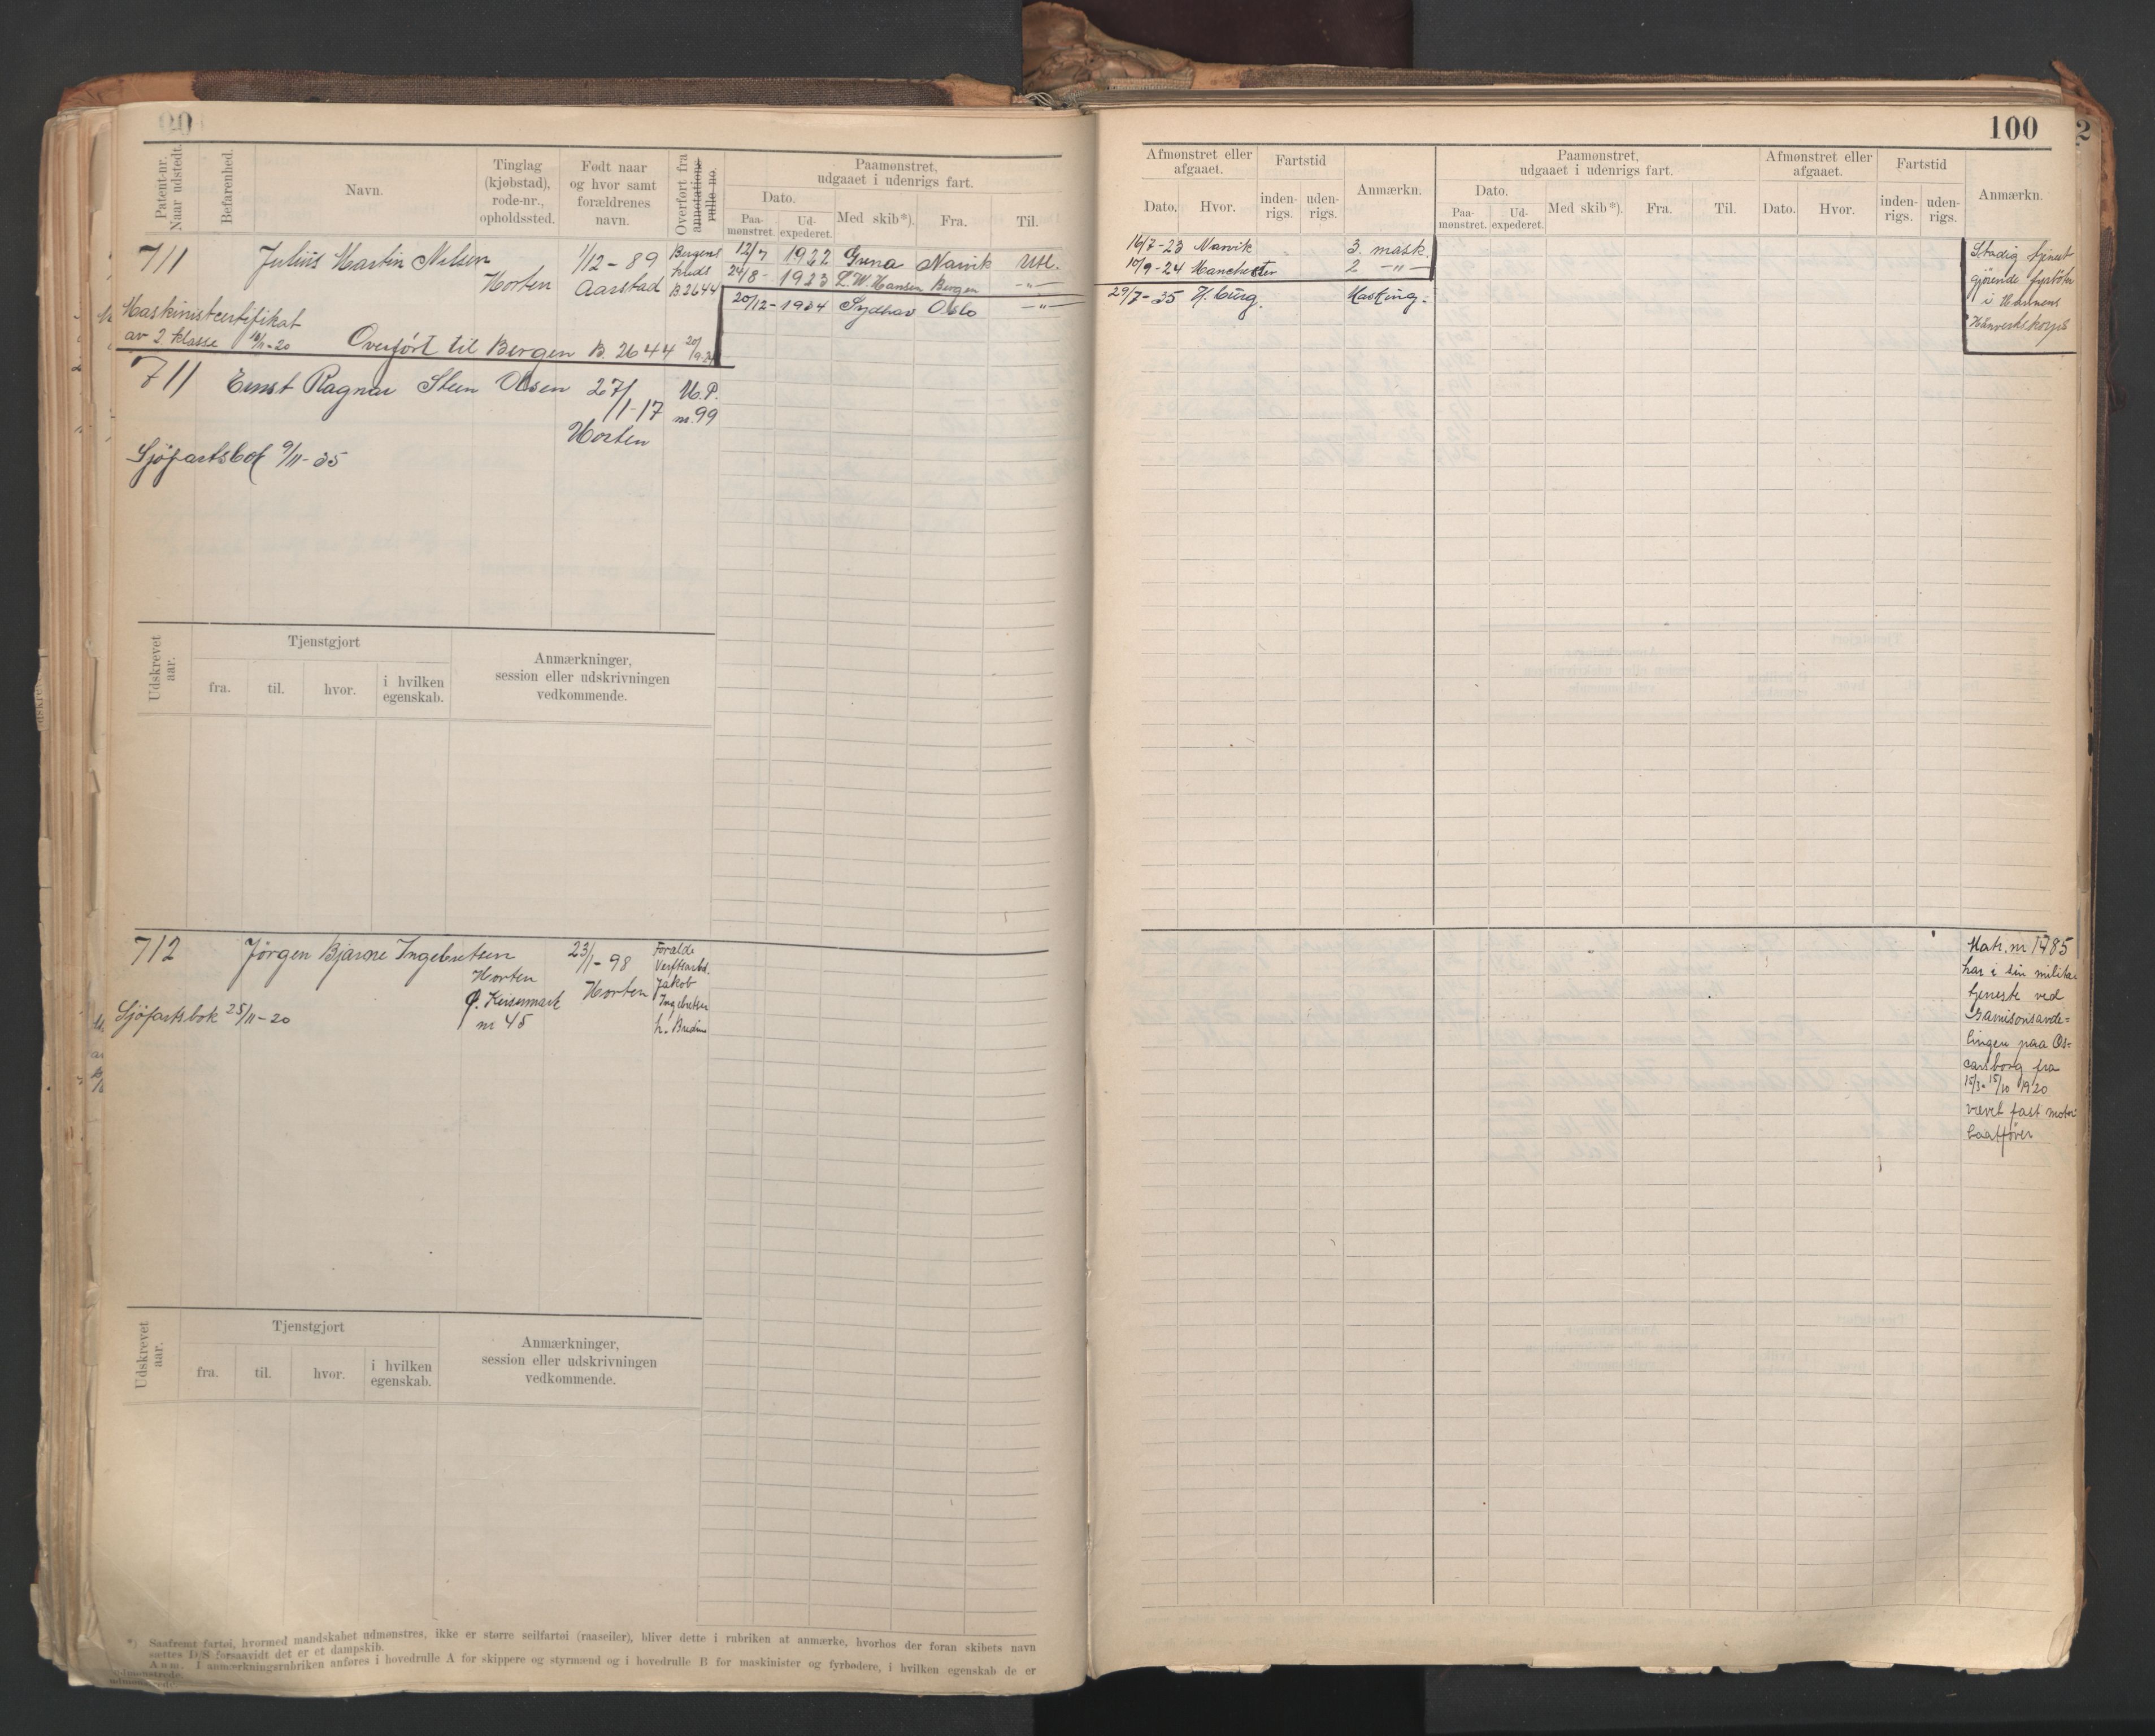 Patent-nr.
Naar udstedt.
Befarenhed.
Navn.
Tinglag
(kjøbstad),
rode-nr.,
opholdssted.
Født naar
og hvor samt
forældrenes
navn.
Overført fra
annotations
rulle no.
Paamønstret,
udgaaet i udenrigs fart.
Dato.
Paa-
mønstret.
Ud-
expederet.
Med skib*).
Fra.
Til.
711 Julius Martin Nilsen 1/12-89 Bergens
Horten Aarstad krets
B 2644
12/7 1922 Grena Narvik Utl.
24/8- 1923 L.W. Hansen Bergen -"-
20/12-1934 Sydhav Oslo -"-
Maskinistcertifikat
av 2 klasse 18/11-20 Overført til Bergen B. 2644 20/9-24
711 Ernst Ragnar Steen Olsen 27/1-17 U.P.
nr. 99
Horten
Sjøfartsbok 9/11-35
Udskrevet
aar.
Tjenstgjort
fra.
til.
hvor.
i hvilken
egenskab.
Anmærkninger,
session eller udskrivningen
vedkommende.
712 Jørgen Bjarne Ingebretsen 23/1-98 Foreldre
Horten Horten Verftsarbd.
Jakob
Ingebretsen
Ø. Keisemark
nr 45
Sjøfartsbok 25/11-20
Udskrevet
aar.
Tjenstgjort
fra.
til.
hvor.
i hvilken
egenskab.
Anmærkninger,
session eller udskrivningen
vedkommende.
*) Saafremt fartøi, hvormed mandskabet udmønstres, ikke er større seilfartøi (raaseiler), bliver dette i rubriken at anmærke, hvorhos der foran skibets navn
sættes D/S forsaavidt det er et dampskib.
Anm. I anmærkningsrubriken anføres i hovedrulle A for skippere og styrmænd og i hovedrulle B for maskinister og fyrbødere, i hvilken egenskab de er
udmønstrede.
100
Afmønstret eller
afgaaet.
Dato.
Hvor.
Fartstid
inden-
rigs.
uden-
rigs.
Anmærkn.
Paamønstret,
udgaaet i udenrigs fart.
Dato.
Paa-
mønstret.
Ud-
expederet.
Med skib*).
Fra.
Til.
Afmønstret eller
afgaaet.
Dato.
Hvor.
Fartstid
inden-
rigs.
uden-
rigs.
Anmærkn.
16/7-23 Narvik 3. mask.
10/9-24 Manchester 2 -"-
29/7-35 H.burg. Masking.
Stadig tjenst
gjørende fyrbøter
i Marinens
Haanverkskorps
Matr. nr 1785
har i sin militær
tjeneste ved
Garnisonsavde=
lingen paa Os=
carsborg fra
15/3-15/10 1920
været fast motor
baatfører
2